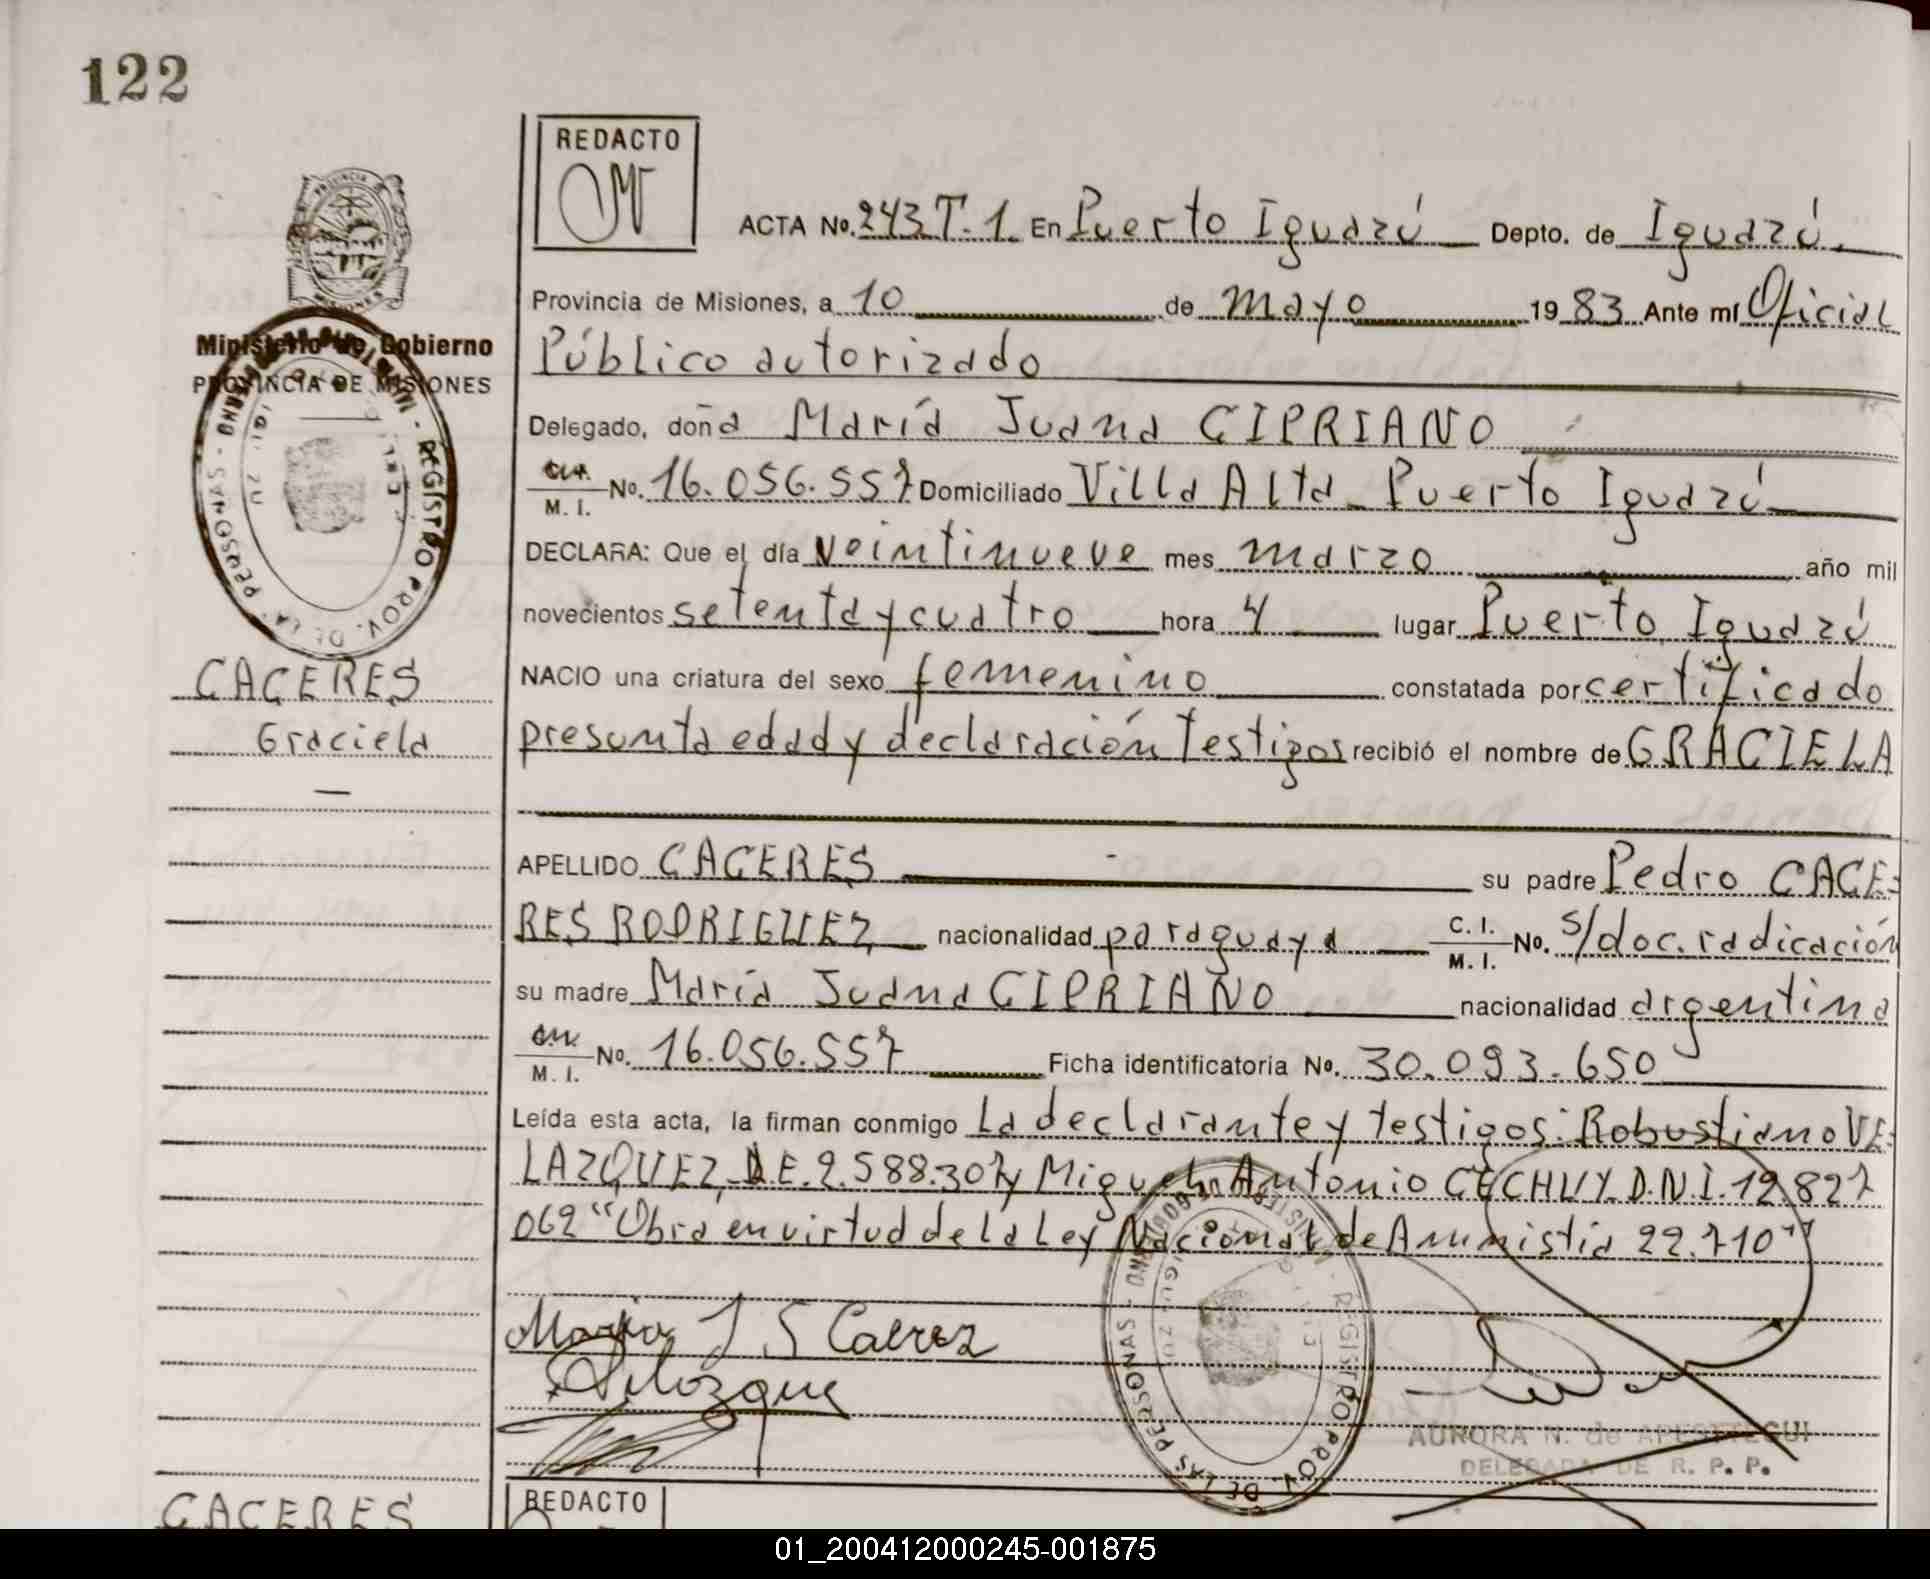 122
REDACTO
ACTA No. 243 T. 1 En Puerto Iguazú Depto. de Iguazú
Provincia de Misiones, a 10 de mayo 1983 Ante mí Oficial
Público autorizado
Ministerio de Gobierno
PROVINCIA DE MISIONES
Delegado, doña María Juana CIPRIANO
M. I. No. 16.056.557 Domiciliado Villa Alta - Puerto Iguazú
DECLARA: Que el día veintinueve mes marzo año mil
novecientos setenta y cuatro hora 4 lugar Puerto Iguazú
CACERES
NACIO una criatura del sexo femenino constatada por certificado
Graciela
presunta edad y declaración testigos recibió el nombre de GRACIELA
—
APELLIDO CACERES su padre Pedro CACE-
RES RODRIGUEZ nacionalidad paraguaya C. I. M. I. No. s/doc. radicación
su madre María Juana CIPRIANO nacionalidad argentina
M. I. No. 16.056.557 Ficha identificatoria No. 30.093.650
Leída esta acta, la firman conmigo La declarante y testigos: Robustiano VE-
LAZQUEZ, E. 2.588.307 y Miguel Antonio CECHUY D.N.I. 12.827
062 "Obra en virtud de la Ley Nacional de Amnistia 22.710"
REGISTRO PROV. DE LAS PERSONAS
Maria J S
AURORA N. de APESTEGUI
DELEGADA DE R. P. P.
CACERES
REDACTO
01_200412000245-001875